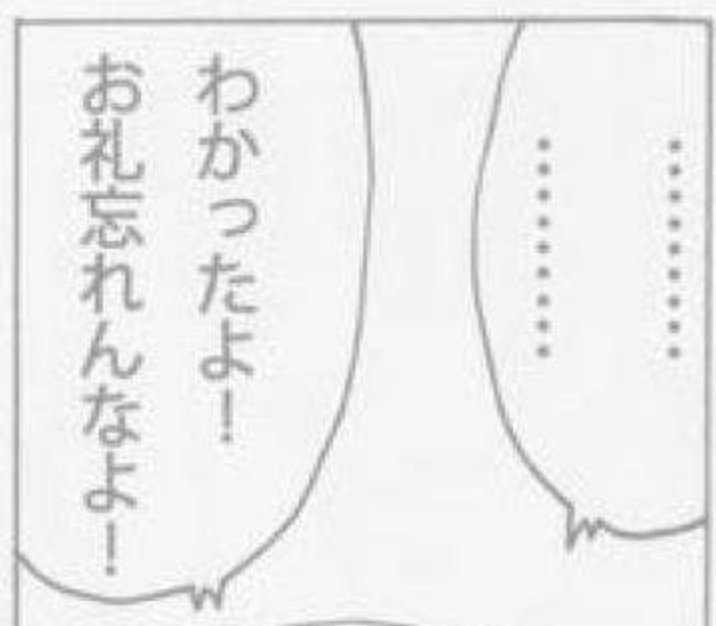 ………
………
わかったよ！
お礼忘れんなよ！